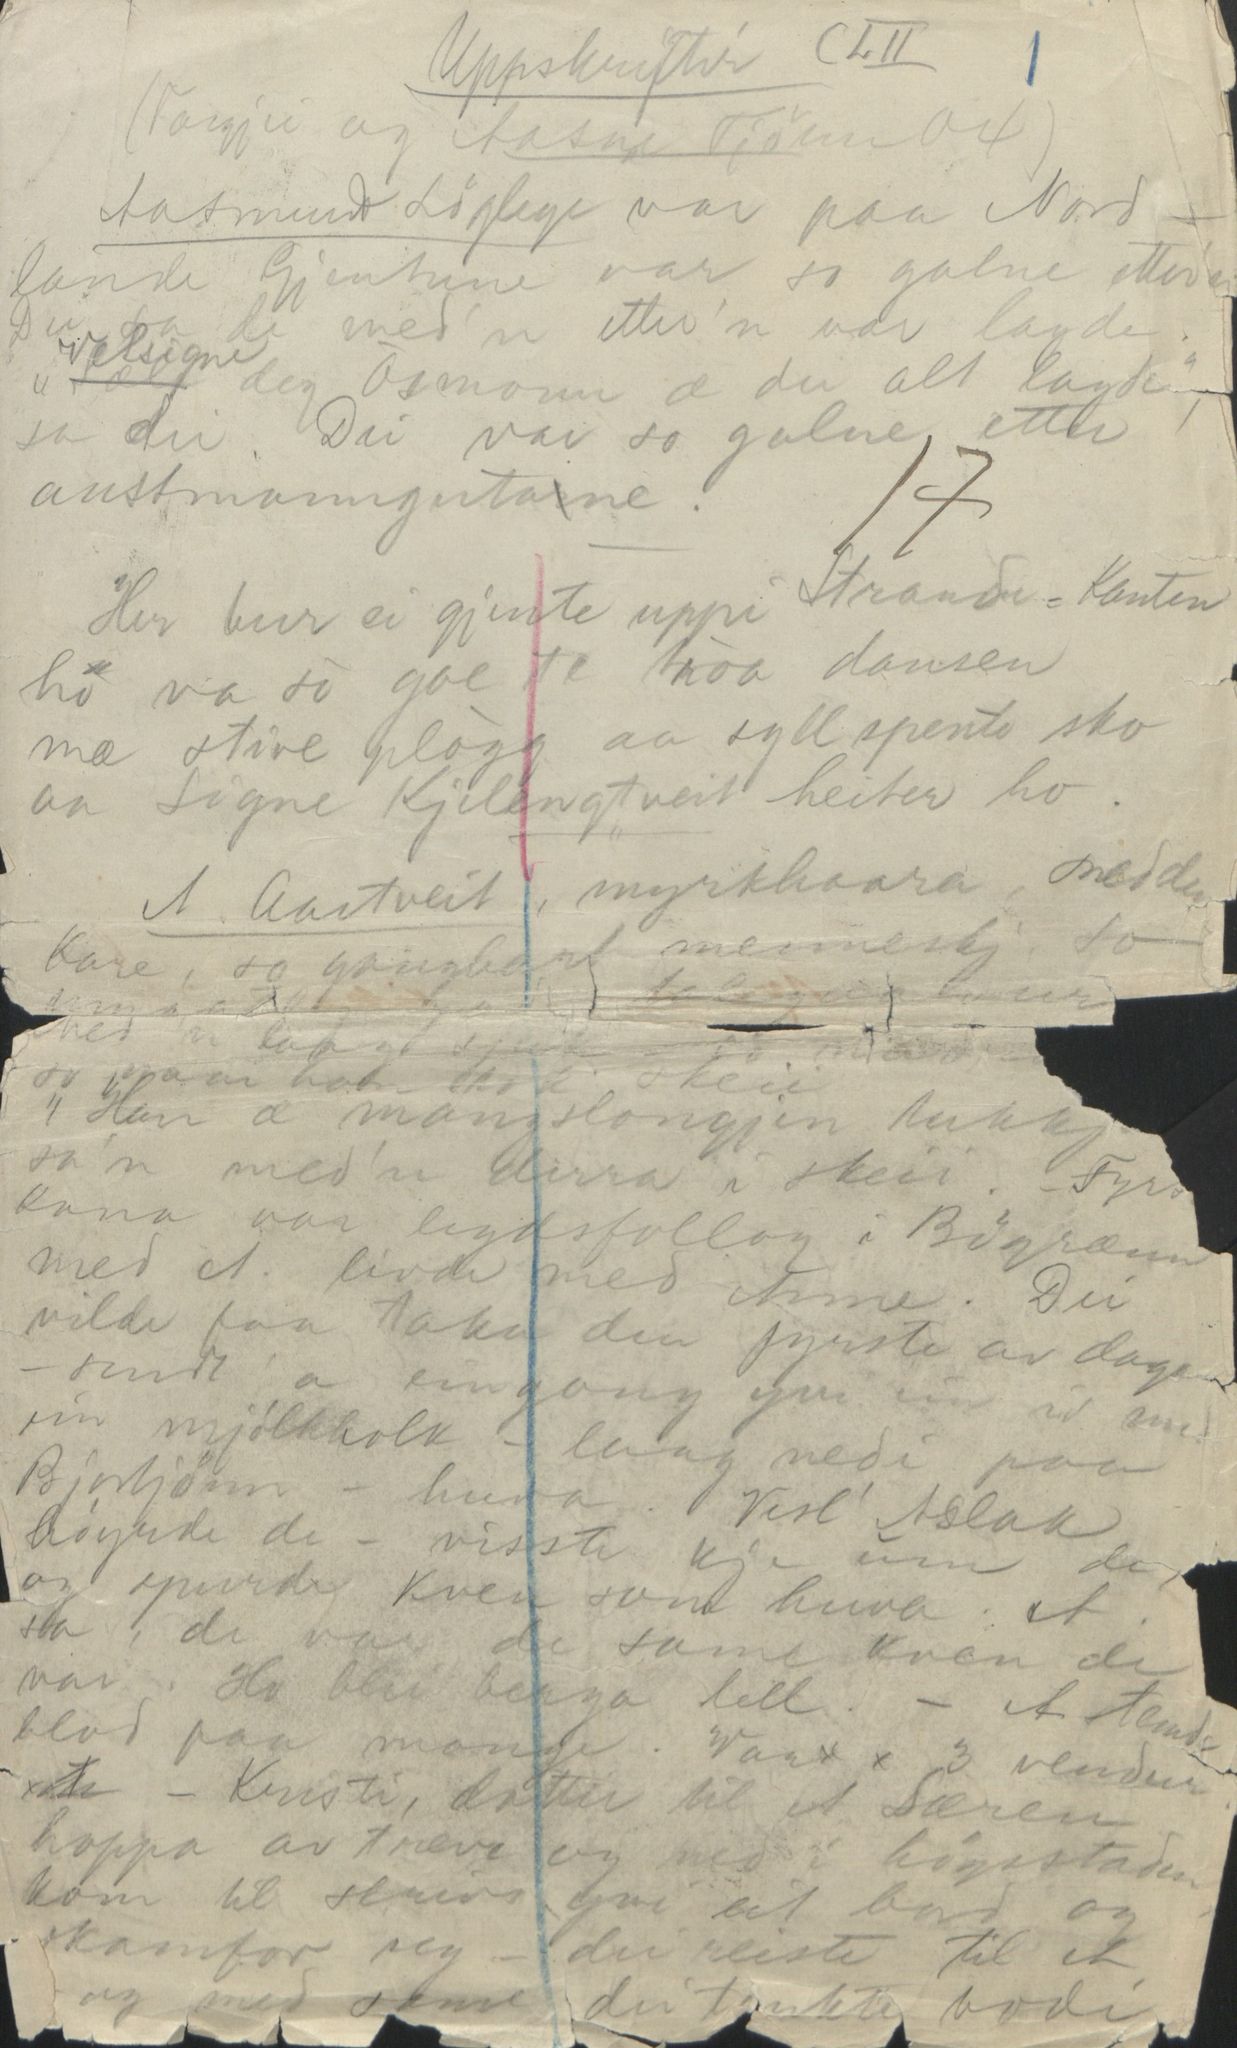 Uppskrifter CLII 1
(Torgjei og Aasne Tjönn Ox)
Aasmund Löglege var paa Nord-
lande Gjentune var so galne etter'n
Dei sa de med'n etter'n var lagde.
velsigne
" deg Osmonn æ du alt lagde",
sa dei. Dei var so galne etter
austmanngutane.
17
Her bur ei gjente uppi Strande-Kanten
ho va so goe te tròa dansen
mæ stive plògg aa syllspente sko
aa Signe Kjilengtveit heiter ho.
A. Aartveit, myrkhaara, medde
kare, so gangbart menneskj. so
med'n
so skeii
"Han æ mangslongjen
sa'n med'n dirra i skeii. - Fyrs
kona var legdsfollog i Bögrænn
med A. livde med Anne. Dei
vilde faa taka den fyrste av dage
- sendt'a eingong yvi ein is med
ein mjölkholk - laag nedi paa
Bjortjönn - huva. Vesl' Aslak
höyrde de - visste kje um de,
og spurde kven som huva. A.
sa, de var de same kven de
var. Ho blei berga lell. - A stemde
blod paa mange. Var x x 3 vendur
x - Kristi, dotter til A Særen
hoppa av træve og ned i högsstaden
kom til skrevs yvi eit bord og
skamfor seg - dei reiste til A
og med same dei tenkte bodi